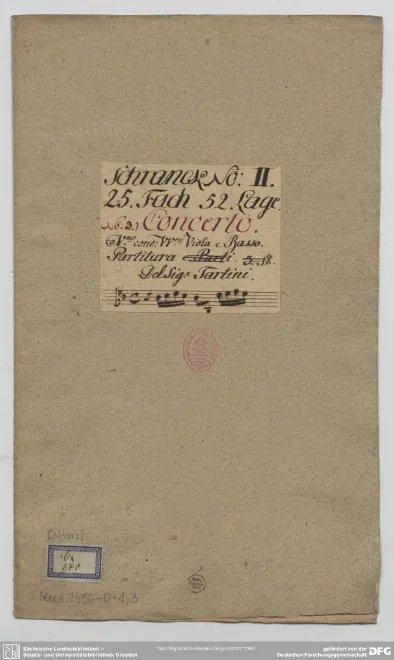 Schranck No: II.
25. Fach 52. Lage.
No: 2.) Concerto.
Viola e Basso.
Partitura e Parti. 5. St.
Del Sigr Tartini.
Mus. 2456-O-1,3
Sächsische Landesbibliothek –
Staats- und Universitätsbibliothek Dresden
gefördert von der
Deutschen Forschungsgemeinschaft
DFG